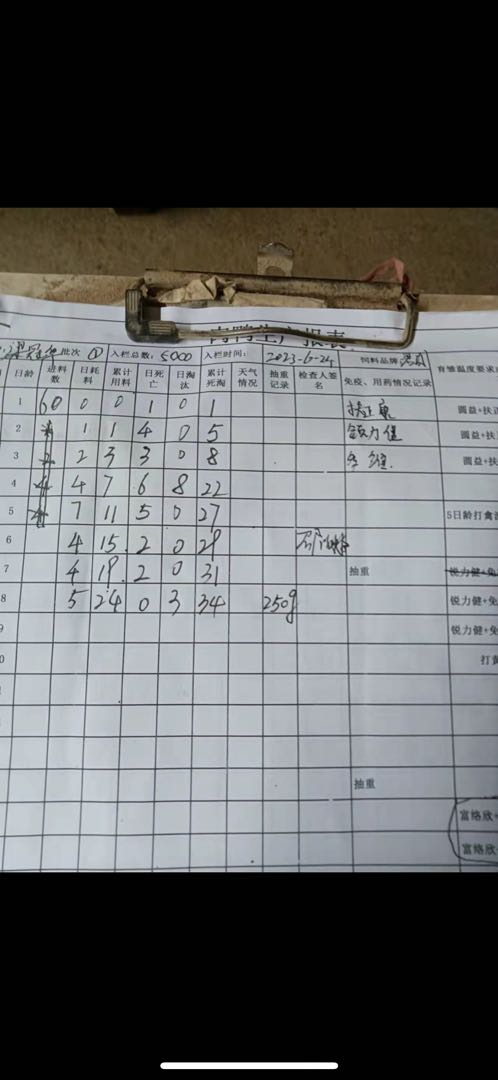 肉鸭生产报表
批次 ① 入栏总数: 5000 入栏时间: 2023-6-24 饲料品牌
日龄 进料数 日耗料 累计用料 日死亡 日淘汰 累计死淘 天气情况 抽重记录 检查人签名 免疫、用药情况记录 育雏温度要求
1 60 0 0 1 0 1 扶正康 圆益+扶正
2 1 1 4 0 5 圆益+扶
3 2 2 3 3 0 8 圆益+扶
4 4 4 7 6 8 22
5 4 7 11 5 0 27 5日龄打禽
6 4 15. 2 0 29
7 4 19. 2 0 31 抽重 锐力健+免
8 5 24 0 3 34 250g 锐力健+免
9 锐力健+免
0 打黄
抽重
富络欣+
富络欣+